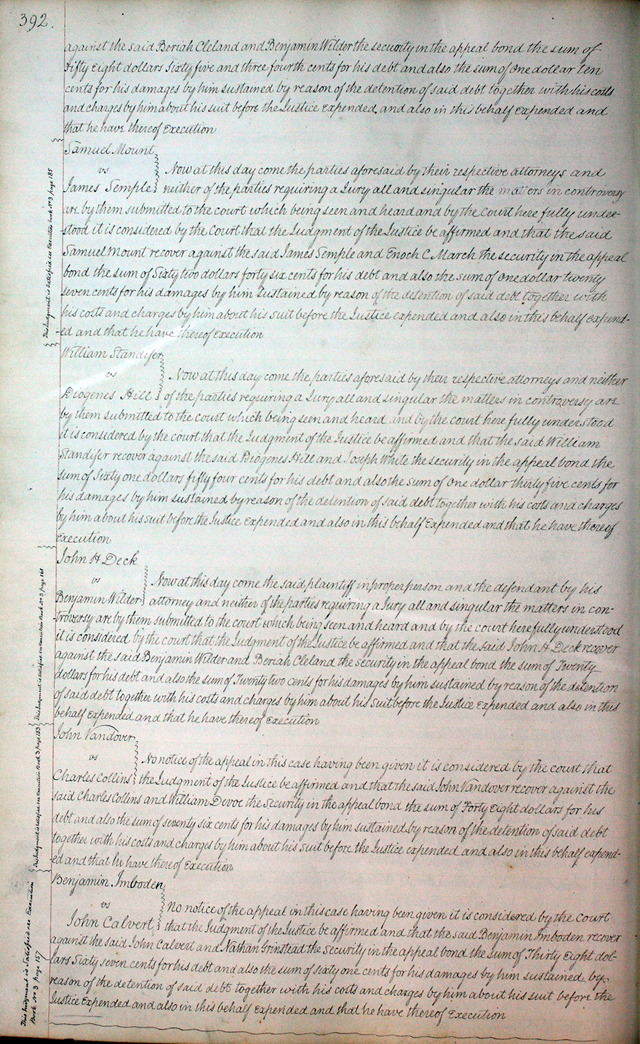 392.
against the said Beriah Cleland and Benjamin Wilder the security in the appeal bond the sum of
Fifty Eight dollars Sixty five and three fourth cents for his debt and also the sum of One dollar ten
cents for his damages by him sustained by reason of the detention of said debt together with his costs
and charges by him about his suit before the Justice expended and also in this behalf expended and
that he have thereof Execution
Samuel Mount
vs Now at this day come the parties aforesaid by their respective attorneys and
James Semple neither of the parties requiring a Jury all and singular the matters in controversy
are by them submitted to the court which being seen and heard and by the Court here fully under-
stood it is considered by the Court that the Judgment of the Justice be affirmed and that the said
Samuel Mount recover against the said James Semple and Enoch C. March the security in the appeal
bond the sum of Sixty two dollars forty six cents for his debt and also the sum of one dollar twenty
seven cents for his damages by him Sustained by reason of the detention of said debt together with
his costs and charges by him about his suit before the Justice expended and also in this behalf expend-
ed and that he have thereof Execution
This Judgment is Satisfied see Execution Book No 3 page 185
William Standifer
vs Now at this day come the parties aforesaid by their respective attorneys and neither
Diogenes Hill of the parties requiring a Jury all and singular the matters in controversy are
by them submitted to the court which being seen and heard and by the court here fully understood
it is considered by the court that the Judgment of the Justice be affirmed and that the said William
Standifer recover against the said Diogenes Hill and Joseph White the security in the appeal bond the
sum of Sixty one dollars fifty four cents for his debt and also the sum of one dollar thirty five cents for
his damages by him sustained by reason of the detention of said debt together with his costs and charges
by him about his suit before the Justice Expended and also in this behalf Expended and that he have thereof
execution
John H Deck
vs Now at this day come the said plaintiff in proper person and the defendant by his
Benjamin Wilder attorney and neither of the parties requiring a Jury all and singular the matters in con-
troversy are by them submitted to the court which being seen and heard and by the court here fully understood
it is considered by the court that the Judgment of the Justice be affirmed and that the said John H Deck recover
against the said Benjamin Wilder and Beriah Cleland the security in the appeal bond the sum of Twenty
dollars for his debt and also the sum of Twenty two cents for his damages by him sustained by reason of the detention
of said debt together with his costs and charges by him about his suit before the Justice Expended and also in this
behalf Expended and that he have thereof Execution
This Judgment is Satisfied see Execution Book No 3 page
John Vandover
vs No notice of the appeal in this case having been given it is considered by the court that
Charles Collins the Judgment of the Justice be affirmed and that the said John Vandover recover against the
said Charles Collins and William Devoe the Security in the appeal bond the sum of Forty Eight dollars for his
debt and also the sum of seventy six cents for his damages by him sustained by reason of the detention of said debt
together with his costs and charges by him about his suit before the Justice expended and also in this behalf expend-
ed and that he have thereof Execution
This Judgment is satisfied see Execution Book No 3 page
Benjamin Imboden
vs No notice of the appeal in this case having been given it is considered by the Court
John Calvert that the Judgment of the Justice be affirmed and that the said Benjamin Imboden recover
against the said John Calvert and Nathan Grinstead the Security in the appeal bond the Sum of Thirty Eight dol-
lars Sixty seven cents for his debt and also the sum of sixty one cents for his damages by him sustained by
reason of the detention of said debt together with his costs and charges by him about his suit before the
Justice Expended and also in this behalf Expended and that he have thereof Execution
This Judgment is Satisfied see Execution
Book No 3 page 157